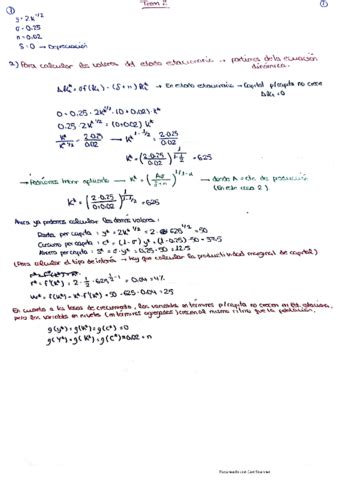 Tema 2
y = 2k^1/2
σ = 0.25
n = 0.02
δ = 0 → Depreciación
a) Para calcular los valores del estado estacionario → partimos de la ecuación dinámica.
Δkt = σf(kt) - (δ+n)kt → En estado estacionario → capital p/capita no crece
Δkt = 0
0 = 0.25 · 2k^1/2 - (0+0.02) k*
0.25 · 2k^1/2 = (0+0.02) k*
k*/k*^1/2 = 2·0.25/0.02 → k*^1-1/2 = 2·0.25/0.02
k* = (2·0.25/0.02)^1/1-1/2 = 625
→ Podríamos haber aplicado → k* = (Aσ/δ+n)^1/1-α → donde A = cte. de producción
(En este caso 2)
k* = (2·0.25/0+0.02)^1/1-1/2 = 625
Ahora ya podemos calcular los demás valores:
Renta per capita: y* = 2k*^1/2 = 2·625^1/2 = 50
Consumo per capita: c* = (1-σ) y* = (1-0.25)·50 = 37.5
Ahorro per capita: s* = σ·y* = 0.25·50 = 12.5
(Para calcular el tipo de interés → hay que calcular la productividad marginal de capital)
r* = f'(k*) = 2·1/2·625^1/2-1 = 0.04 = 4%
w* = f(k*) - k*·f'(k*) = 50 - 625·0.04 = 25
En cuanto a las tasas de crecimiento, las variables en términos p/capita no crecen en EE
pero las variables en niveles (en términos agregados) crecen al mismo ritmo que la población.
g(y*) = g(k*) = g(c*) = 0
g(Y*) = g(K*) = g(C*) = 0.02 = n